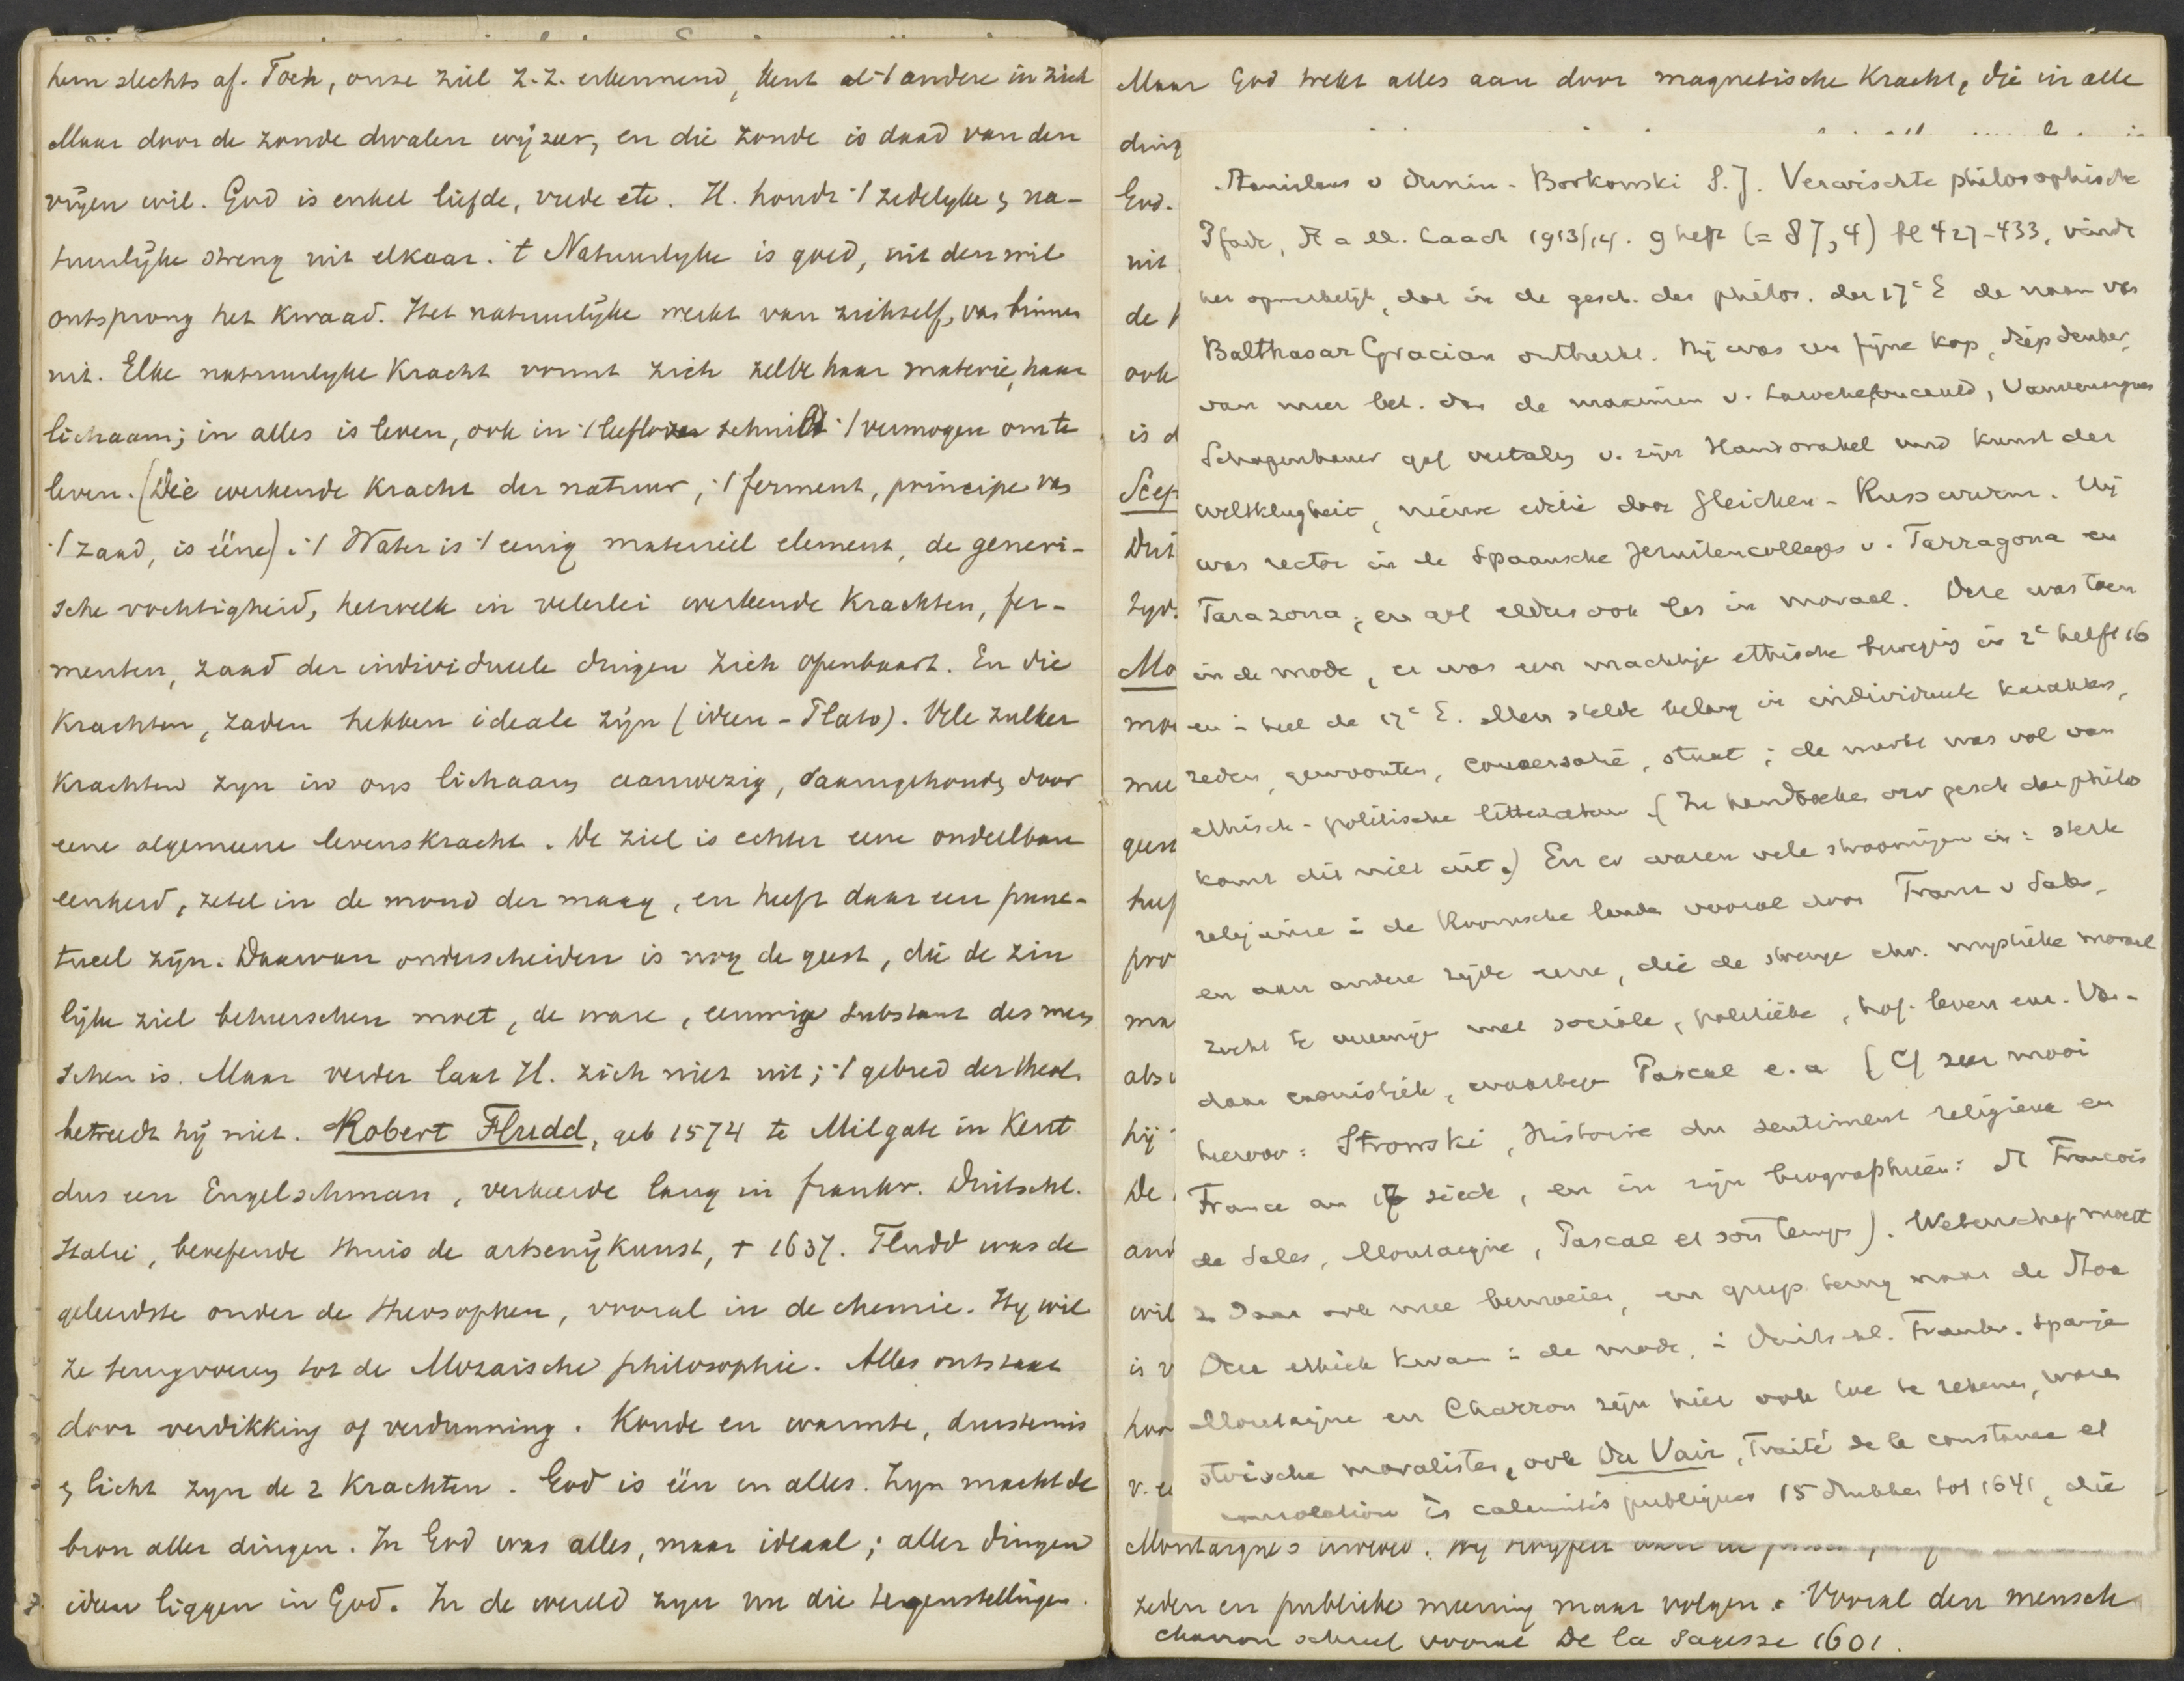 hem slechts af. Toch, onze ziel z.z. erkennend, kent al 't andere in zich
Maar door de zonde dwalen wij zeer, en die zonde is daad van den
vrijen wil. God is enkel liefde, vrede etc. H. houdt 't zedelyke & na-
tuurlijke streng uit elkaar. 't Natuurlyke is goed, uit den wil
ontsprong het kwaad. Het natuurlijke werkt van zichzelf, van binnen
uit. Elke natuurlyke kracht vormt zich zelve haar materie, haar
lichaam; in alles is leven, ook in 't schuilt 't vermogen om te
leven. (Die werkende kracht der natuur, 't ferment, principe van
't zaad, is ééne) 't Water is 't eenig materieel element, de generi-
sche vochtigheid, hetwelk in velerlei werkende krachten, fer-
menten, zaad der individueele dingen zich openbaart. En die
krachten, zaden hebben ideale zijn (ideen - Plato). Vele zulker
krachten zyn in ons lichaam aanwezig, saamgehouden door
eene algemeene levenskracht. De ziel is echter eene ondeelbare
eenheid, zetel in de mond der maag, en heeft daar een punc-
tueel zijn. Daarvan onderscheiden is nog de geest, die de zin
lijke ziel beheerschen moet, de ware, eeuwige substant des men
schen is. Maar verder laat H. zich niet uit; 't gebied der theol.
betreedt hij niet. Robert Fludd, geb 1574 te Milgate in Kent
dus een Engelschman, verkeerde lang in frankr. Duitschl.
Italie, beoefende thuis de artsenijkunst, † 1637. Fludd was de
geleerdste onder de theosophen, vooral in de chemie. Hy wil
ze terugvoeren tot de Mozaische philosophie. Alles ontstaat
door verdikking of verdunning. Koude en warmte, duisternis
& licht zyn de 2 krachten. God is één en alles. Zyn macht de
bron aller dingen. In God was alles, maar ideaal; aller dingen
ideen liggen in God. In de wereld zyn nu die tegenstellingen.
Maar God trekt alles aan door magnetische kracht, die in alle
Stanislaus v Dunin-Borkowski S.J. Verwischte philosophische
Pfade, St a M. Laach 1913/14. 9 heft (= 87,4) bl 427-433, vindt
het opmerkelijk, dat in de gesch. der philos. der 17e E de naam van
Balthasar Gracian ontbreekt. Hij was een fijne kop, diepdenker,
van meer bet. dan de maximen v. Larochefoucauld, Vauvenargues
Schopenhauer gaf vertaling v. zijn Handorakel und Kunst der
Weltklugheit, nieuwe editie door Gleichen-Russwurm. Hij
was rector in de Spaansche Jezuitencolleges v. Tarragona en
Tarazona, en gaf elders ook les in moraal. Deze was toen
in de mode, er was een machtige ethische beweging in 2e helft 16
en in heel de 17e E. Men stelde belang in individueele karakters,
zeden, gewoonten, conversatie, staat; de markt was vol van
ethisch-politische litteratuur. (In handboeken over gesch der philos
komt dit niet uit.) En er waren vele stroomingen in: sterk
religieuse in de Roomsche landen vooral door Franz v Sales,
en aan andere zijde eene, die de strenge chr. mystieke moraal
zocht te vereenigen met sociale, politieke, hof-leven enz. Van-
daar casuistiek, waartegen Pascal e.a (Cf zeer mooi
hierover: Strowski, Histoire du sentiment religieux en
France au 17 siècle, en in zijn biographieën: St François
de Sales, Montaigne, Pascal et son temps). Wetenschap moest
z daar ook mee bemoeien, en greep terug naar de Stoa
Deze ethiek kwam in de mode, in Duitschl. Frankr. Spanje
Montaigne en Charron zijn hier ook toe te rekenen, waren
stoische moralisten, ook Du Vair, Traité de la constance et
consolation ès calamités publiques 15 drukken tot 1641, die
zeden en publieke meening maar volgen. Vooral den mensch
Charron schreef vooral De la Sagesse 1601.